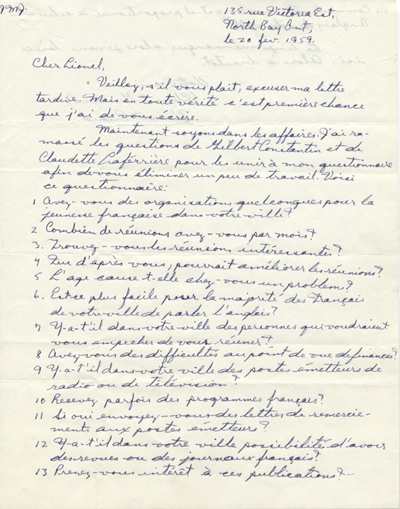 135 rue Victoria Est,
North Bay Ont,
le 20 fev. 1959.
Cher Lionel,
Veillez, s'il vous plait, excuser ma lettre
tardive. Mais en toute vérité c'est première chance
que j'ai de vous écrire.
Maintenant soyons dans les affaires. J'ai ra-
massé les questions de Gilbert Constantin et de
Claudette Laferrière pour les unir à mon questionnaire
afin de vous éliminer un peu de travail. Voici
ce questionnaire:
1 Avez-vous des organisations quelconques pour la
jeunesse française dans votre ville?
2 Combien de réunions avez-vous par mois?
3. Trouvez-vous les réunions intéressantes?
4 Que d'après-vous, pouvrait améliorer les réunions?
5 L'age cause-t-elle chez-vous un problème?
6. Est-ce plus facile pour la majorité des français
de votre ville de parler l'anglais?
7 Y-a-t'il dans votre ville des personnes qui voudraient
vous empecher de vous réunir?
8 Avez-vous des difficultés au point de vue definances?
9 Y-a-t'il dans votre ville des postes émetteurs de
radio ou de télévision?
10 Recevez parfois des programmes français?
11 Si oui envoyez-vous des lettres de remercie-
ments aux postes émetteurs?
12 Y-a-t'il dans votre ville possibilité d'avoir
des revues ou des journaux français?
13 Prenez-vous intérêt à ces publications?